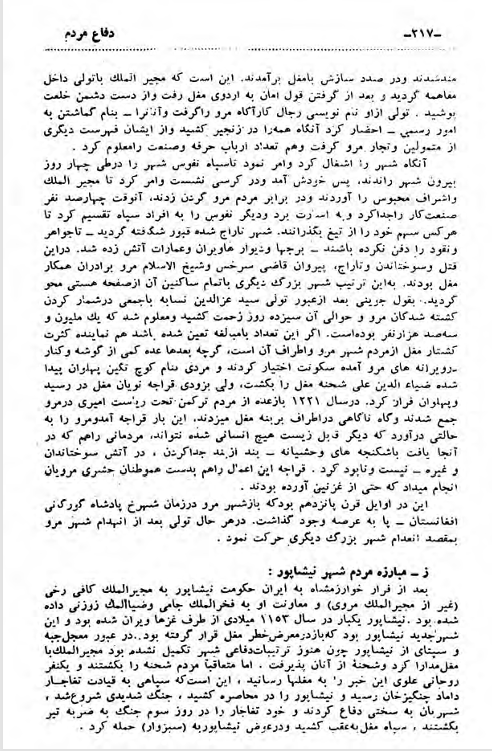 ـ۲۱۷ـ
دفاع مردم
مندشدند ودر صدد سازش بامغل برآمدند. این است که مجیر الملک باتولی داخل
مفاهمه گردید و بعد از گرفتن قول امان به اردوی مغل رفت واز دست دشمن خلعت
پوشید . تولی ازاو نام نویسی رجال کارآگاه مرو راگرفت وآنانرا ـ بنام گماشتن به
امور رسمی ـ احضار کرد آنگاه همهرا در زنجیر کشید واز ایشان فهرست دیگری
از متمولین وتجار مرو گرفت وهم تعداد ارباب حرفه وصنعت رامعلوم کرد .
آنگاه شهر را اشغال کرد وامر نمود تاسپاه نفوس شهر را درطی چهار روز
بیرون شهر راندند، پس خودش آمد ودر کرسی نشست وامر کرد تا مجیر الملک
واشراف محبوس را آوردند ودر برابر مردم مرو گردن زدند، آنوقت چهارصد نفر
صنعت‌کار راجداکرد وبه اسارت برد ودیگر نفوس را به افراد سپاه تقسیم کرد تا
هرکس سهم خود را از تیغ بگذرانند. شهر تاراج شده قبور شگافته گردید ـ تاجواهر
ونقود را دفن نکرده باشند ـ برجها ودیوار هاویران وعمارات آتش زده شد. دراین
قتل وسوختاندن وتاراج، پیروان قاضی سرخس وشیخ الاسلام مرو برادران همکار
مغل بودند. به‌این ترتیب شهر بزرگ دیگری باتمام ساکنین آن ازصفحه هستی محو
گردید. بقول جوینی بعد ازعبور تولی سید عزالدین نسابه باجمعی درشمار کردن
کشته شدگان مرو و حوالی آن سیزده روز زحمت کشید ومعلوم شد که یك ملیون و
سه‌صد هزارنفر بوده‌است. اگر این تعداد بامبالغه تعین شده باشد هم نماینده کثرت
کشتار مغل ازمردم شهر مرو واطراف آن است، گرچه بعدها عده کمی از گوشه وکنار
ـرویرانه های مرو آمده سکونت اختیار کردند و مردی بنام کوچ تگین پهلوان پیدا
شده ضیاء الدین علی شحنه مغل را بکشت، ولی بزودی قراجه نویان مغل در رسید
وپهلوان فرار کرد. درسال ۱۲۲۱ بازعده از مردم ترکمن تحت ریاست امیری درمرو
جمع شدند وگاه ناگاهی دراطراف بربنه مغل میزدند. این بار قراجه آمدومرو را به
حالتی درآورد که دیگر قابل زیست هیچ انسانی شده نتواند، مردمانی راهم که در
آنجا یافت باشکنجه های وحشیانه ـ بند ازبند جداکردن ، در آتش سوختاندان
و غیره ـ نیست ونابود کرد . قراجه این اعمال راهم بدست هموطنان حشری مرویان
انجام میداد که حتی از غزنین آورده بودند .
این در اوایل قرن پانزدهم بودکه بازشهر مرو درزمان شهرخ پادشاه گورگانی
افغانستان ـ پا به عرصه وجود گذاشت. درهر حال تولی بعد از انهدام شهر مرو
بمقصد انعدام شهر بزرگ دیگری حرکت نمود .
ز ـ مبارزه مردم شهر نیشاپور :
بعد از فرار خوارزمشاه به ایران حکومت نیشاپور به مجیرالملك کافی رخی
(غیر از مجیرالملك مروی) و معاونت او به فخرالملك جامی وضیاالملك زوزنی داده
شده بود. نیشاپور یکبار در سال ۱۱۵۳ میلادی از طرف غزها ویران شده بود و این
شهرجدید نیشاپور بود که‌بازدرمعرض‌خطر مغل قرار گرفته بود. در عبور معجل‌جبه
و سبتای از نیشاپور چون هنوز ترتیبات‌دفاعی شهر تکمیل نشده بود مجیرالملك‌با
مغل‌مدارا کرد وشحنهٔ از آنان پذیرفت . اما متعاقباً مردم شحنه را بکشتند و یکنفر
روحانی علوی این خبر را به مغلها رسانید ، این است‌که سپاهی به قیادت تفاجـار
داماد چنگیزخان رسید و نیشاپور را در محاصره کشید ، جنگ شدیدی شروع‌شد ،
شهریان به سختی دفاع کردند و خود تفاجار را در روز سوم جنگ به ضربه تیر
بکشتند ، سپاه مغل‌به‌عقب کشید ودرعوض نیشاپوربه (سبزوار) حمله کرد .